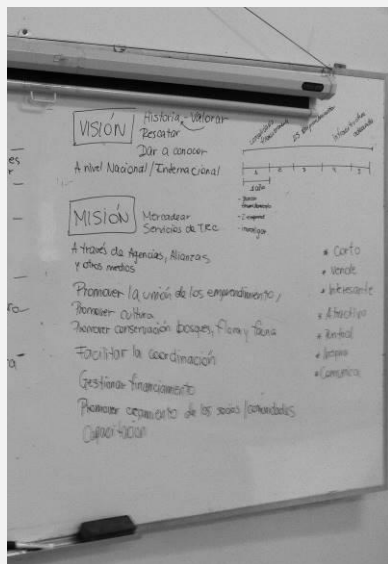 VISIÓN
Historia - Valorar
Rescatar
Dar a conocer
A nivel Nacional / Internacional
1 año
MISIÓN
Mercadear
Servicios de TRC
A través de Agencias, Alianzas
y otros medios
Promover la unión de los emprendimiento,
Promover cultura
Promover conservación bosques, flora y fauna
Facilitar la coordinación
Gestionar financiamiento
Promover crecimiento de los socios / comunidades
Capacitación
Corto
Vende
Interesante
Atractivo
Inspira
Comunica